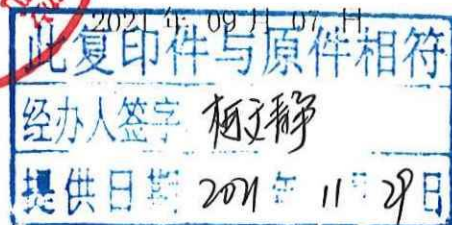 2021年 09月 07日
此复印件与原件相符
经办人签字 柯文静
提供日期 2021年 11月 29日